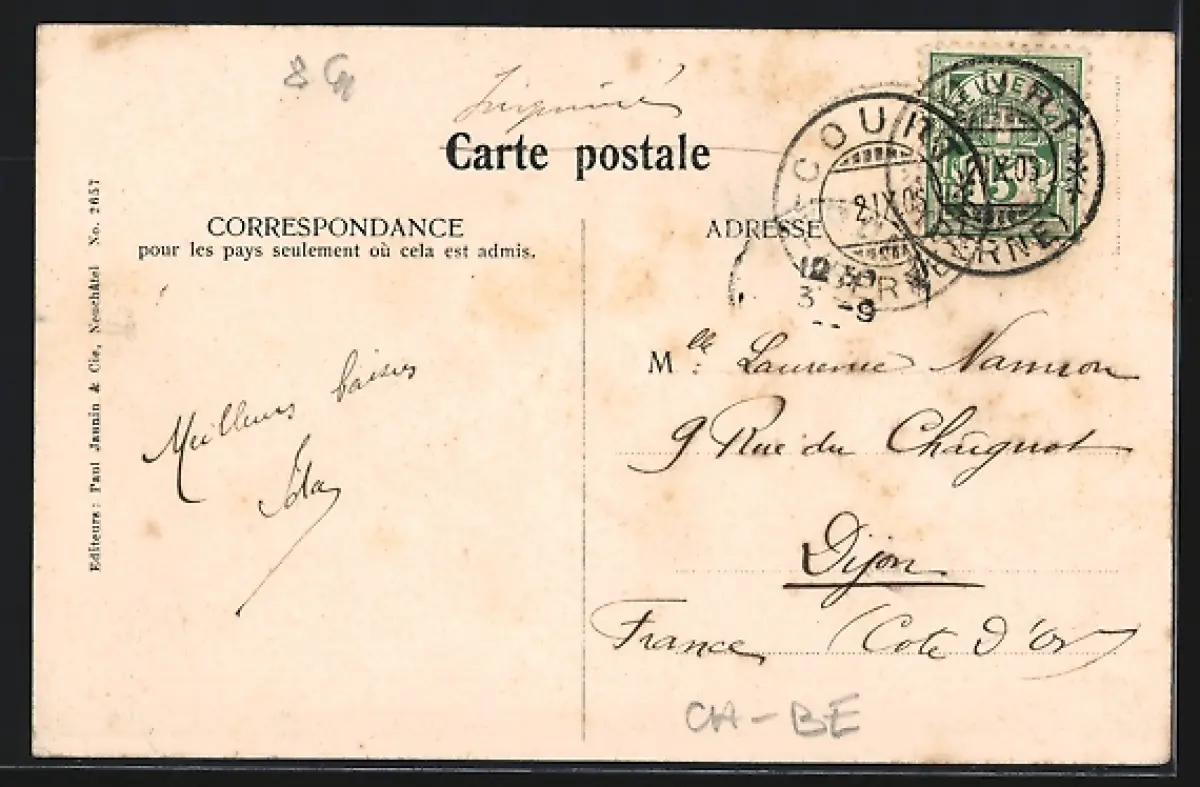 8 Gn
Imprimé
Carte postale
CORRESPONDANCE
pour les pays seulement où cela est admis.
Meilleurs baisers
Ida
Editeurs: Paul Jaunin & Cie, Neuchâtel No. 2657
ADRESSE
COURT
(BERNE)
COURT
2.IX.09
(BERNE)
3 -9
5
Mlle: Laurence Namron
9 Rue du Chaignot
Dijon
France (Cote d'Or)
CH-BE